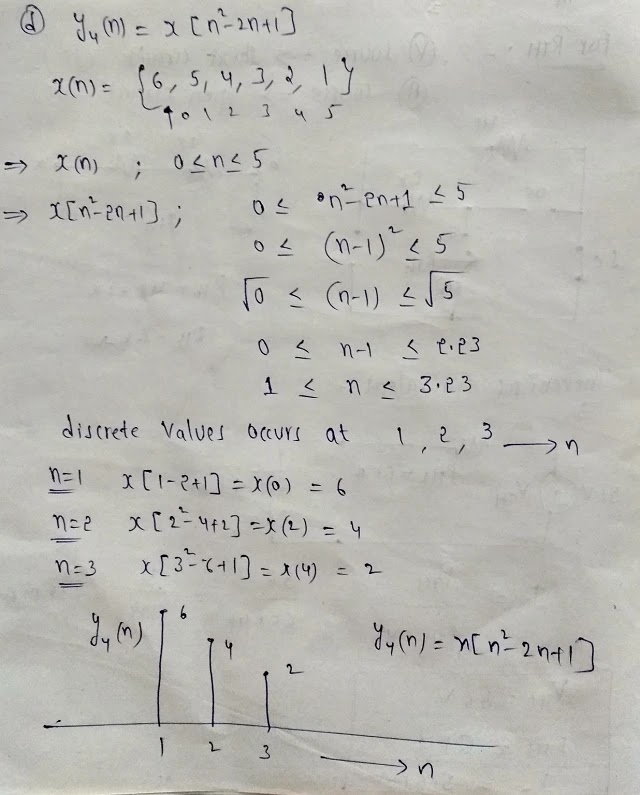 ⓓ y₄(n) = x[n²-2n+1]
x(n) = {6, 5, 4, 3, 2, 1}
↑0 1 2 3 4 5
⇒ x(n) ; 0 ≤ n ≤ 5
⇒ x[n²-2n+1] ; 0 ≤ n²-2n+1 ≤ 5
0 ≤ (n-1)² ≤ 5
√0 ≤ (n-1) ≤ √5
0 ≤ n-1 ≤ 2.23
1 ≤ n ≤ 3.23
discrete values occurs at 1, 2, 3 → n
n=1 x[1-2+1] = x(0) = 6
n=2 x[2²-4+2] = x(2) = 4
n=3 x[3²-6+1] = x(4) = 2
y₄(n) 6 4 2 y₄(n) = x[n²-2n+1]
1 2 3 → n